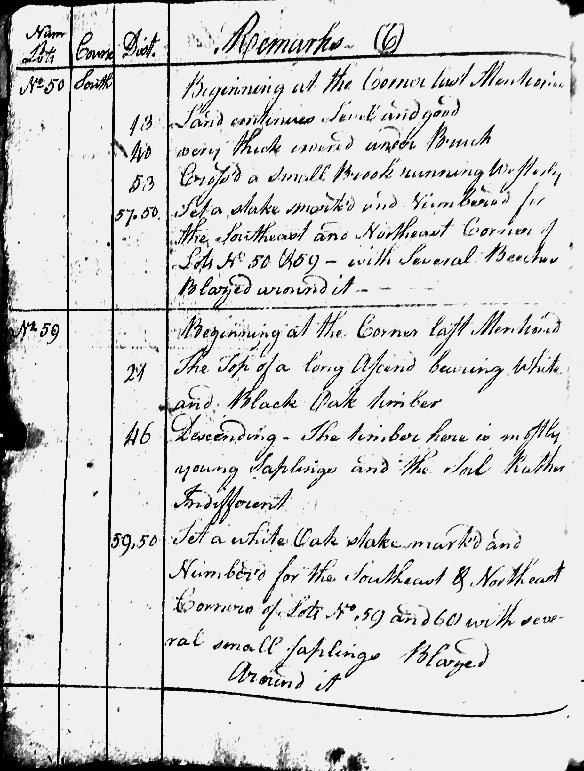 Num Lots Course Dist. Remarks (6)
No 50 South Beginning at the Corner last Mention
13 Land continues Level and good
40 very thick covered under Brush
53 Cross'd a small Brook running Westerly
57.50 Set a stake mark'd and Numbered for
the Southeast and Northeast Corner of
Lots No. 50 & 59 - with Several Beeches
Blazed around it - - -
No 59 Beginning at the Corner last Mention'd
21 The Top of a long Ascend bearing White
and Black Oak timber
46 Descending - The timber here is mostly
young Saplings and the Soil Rather
Indifferent
59.50 Set a white Oak stake mark'd and
Number'd for the Southeast & Northeast
Corners of Lots No. 59 and 60 with seve-
ral small saplings Blazed
Around it